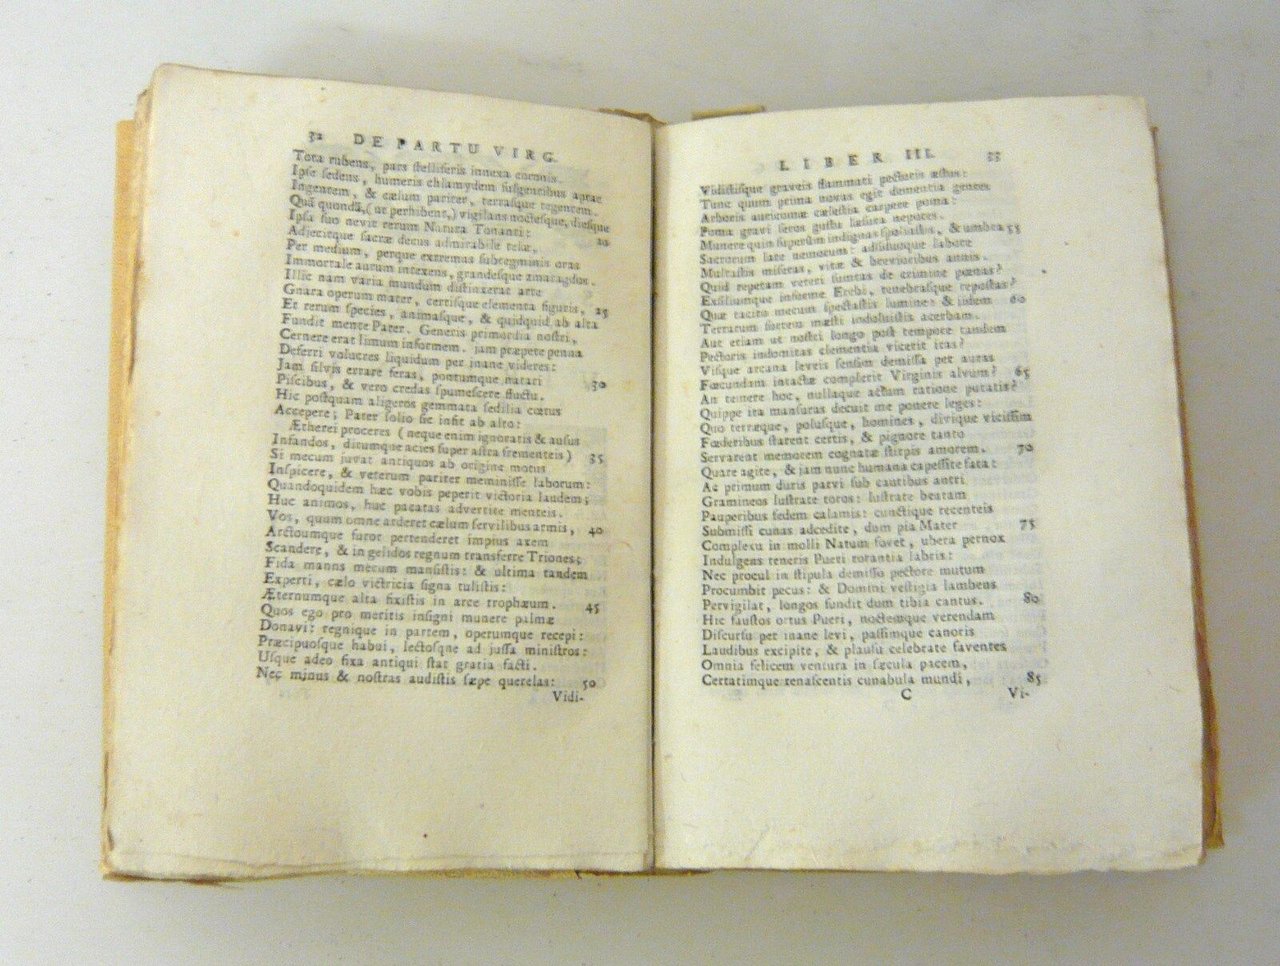 32 DE PARTU VIRG.
Tota rubens, pars stelliferis innexa coronis.
Ipse sedens, humeris chlamydem fulgentibus aptat
Ingentem, & cælum pariter, terrasque tegentem.
Quā quondā, (ut perhibent,) vigilans noctesque, diesque
Ipsa suo nevit rerum Natura Tonanti: 20
Adjecitque sacræ decus admirabile telæ,
Per medium, perque extremas subtegminis oras
Immortale aurum intexens, grandesque zmaragdos.
Illic nam varia mundum distinxerat arte
Gnara operum mater, certisque elementa figuris, 25
Et rerum species, animasque, & quidquid ab alta
Fundit mente Pater. Generis primordia nostri,
Cernere erat limum informem. jam præpete penna
Deferri volucres liquidum per inane videres:
Jam silvis errare feras, pontumque natari 30
Piscibus, & vero credas spumescere fluctu.
Hic postquam aligeros gemmata sedilia cœtus
Accepere; Pater solio sic infit ab alto:
Ætherei proceres (neque enim ignoratis & ausus
Infandos, ditumque acies super astra frementeis) 35
Si mecum juvat antiquos ab origine motus
Inspicere, & veterum pariter meminisse laborum:
Quandoquidem hæc vobis peperit victoria laudem;
Huc animos, huc pacatas advertite menteis.
Vos, quum omne arderet cælum servilibus armis, 40
Arctoumque furor pertenderet impius axem
Scandere, & in gelidos regnum transferre Triones;
Fida manns mecum mansistis: & ultima tandem
Experti, cælo victricia signa tulistis:
Æternumque alta fixistis in arce trophæum. 45
Quos ego pro meritis insigni munere palmæ
Donavi: regnique in partem, operumque recepi:
Præcipuosque habui, lectosqne ad jussa ministros:
Usque adeo fixa antiqui stat gratia facti.
Nec minus & nostras audistis sæpe querelas: 50
Vidi-
LIBER III. 33
Vidistisque graveis flammati pectoris æstus:
Tunc quum prima novas egit dementia gentes
Arboris auricomæ cælestia carpere poma:
Poma gravi seros gustu læsura nepotes.
Munere quin superûm indignas spoliastis, & umbra 55
Sacrorum late nemorum: adsiduoque labore
Multastis miseras, vitæ & brevioribus annis.
Quid repetam veteri sumtas de crimine pœnas?
Exsiliumque informe Erebi, tenebrasque repostas?
Quæ tacito mecum spectastis lumine: & iidem 60
Terrarum sortem mæsti indoluistis acerbam.
Aut etiam ut nostri longo post tempore tandem
Pectoris indomitas clementia vicerit iras?
Visque arcana leveis sensim demissa per auras
Fœcundam intactæ complerit Virginis alvum? 65
An temere hoc, nullaque actum ratione putatis?
Quippe ita mansuras decuit me ponere leges:
Quo terræque, polusque, homines, divique vicissim
Fœderibus starent certis, & pignore tanto
Servarent memorem cognatæ stirpis amorem. 70
Quare agite, & jam nunc humana capessite fata:
Ac primum duris parvi sub cautibus antri
Gramineos lustrate toros: lustrate beatam
Pauperibus sedem calamis: cunctique recenteis
Submissi cunas adcedite, dum pia Mater 75
Complexu in molli Natum fovet, ubera pernox
Indulgens teneris Pueri rorantia labris:
Nec procul in stipula demisso pectore mutum
Procumbit pecus: & Domini vestigia lambens
Pervigilat, longos fundit dum tibia cantus. 80
Hic faustos ortus Pueri, noctemque verendam
Discursu per inane levi, passimque canoris
Laudibus excipite, & plausu celebrate faventes
Omnia felicem ventura in sæcula pacem,
Certatimque renascentis cunabula mundi, 85
C Vi-